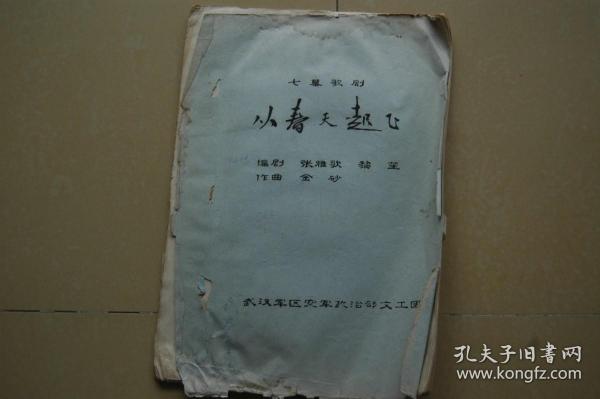 七幕歌剧
从春天起飞
编剧 张雅歌 黎笙
作曲 金砂
武汉军区空军政治部文工团
孔夫子旧书网
www.kongfz.com